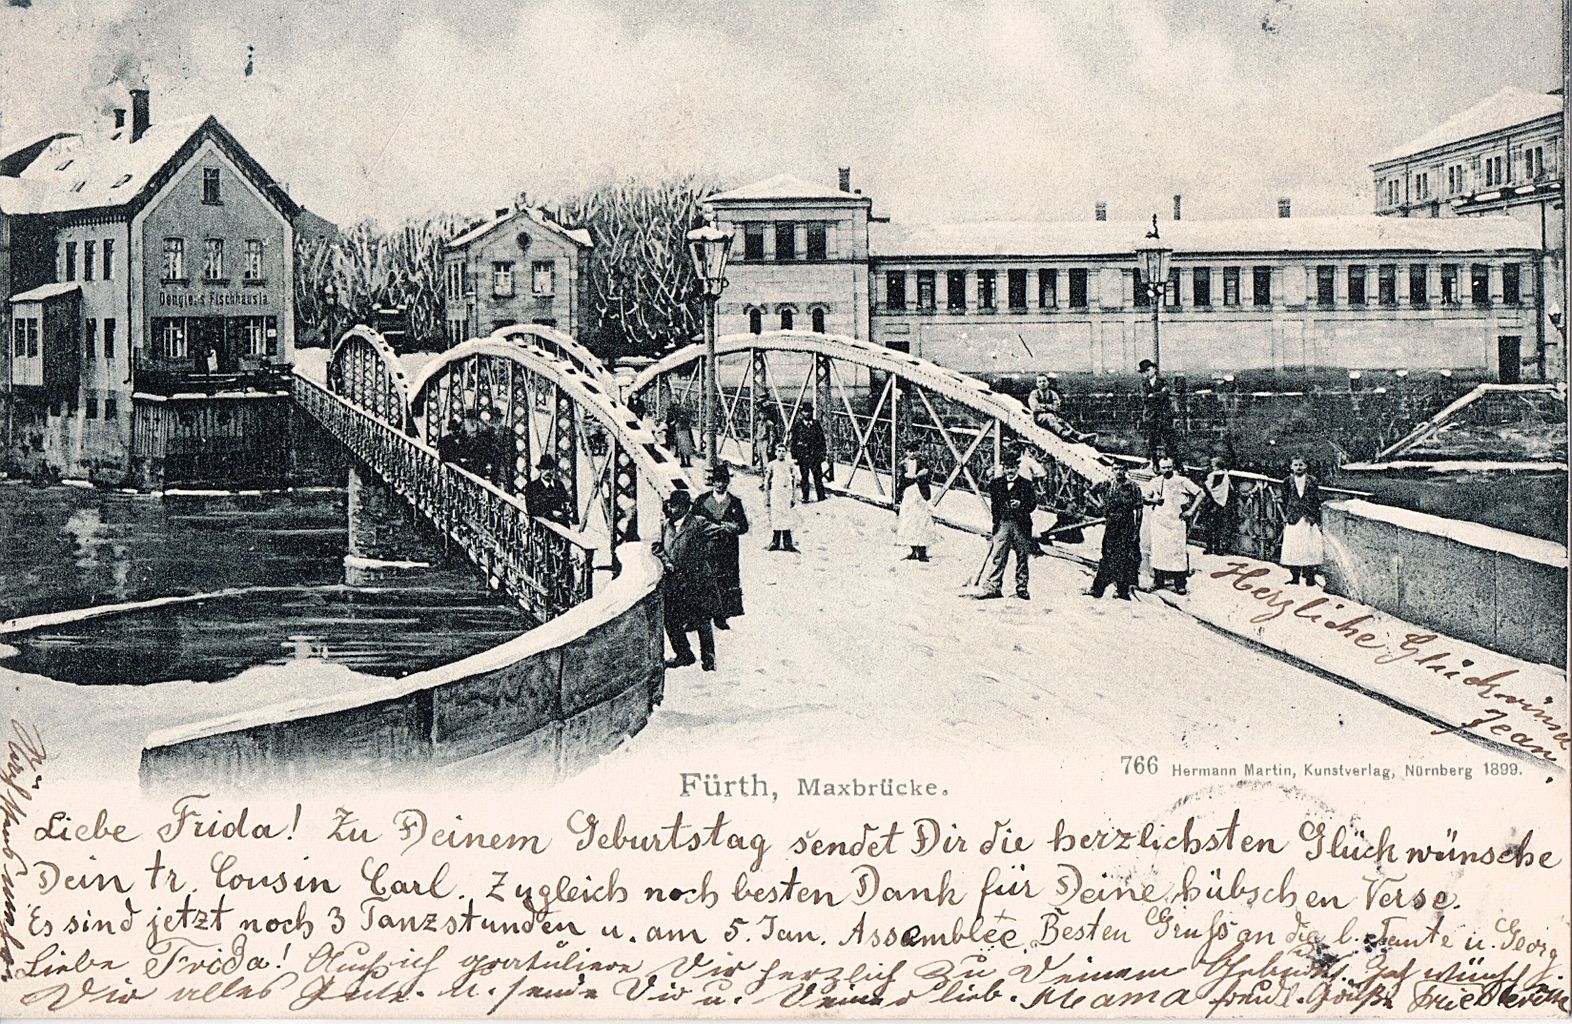 Fischhaus
Herzliche Glückwünsche
Jean.
766 Hermann Martin, Kunstverlag, Nürnberg 1899.
Fürth, Maxbrücke.
Liebe Frida! Zu Deinem Geburtstag sendet Dir die herzlichsten Glückwünsche
Dein tr. Cousin Carl. Zugleich noch besten Dank für Deine hübschen Verse.
Es sind jetzt noch 3 Tanzstunden u. am 5. Jan. Assemblée Besten Gruß an die l. Tante u. Georg.
Liebe Frida! Auch ich gratuliere Dir herzlich zu Deinem Ich wünsche
Dir alles Gute. u. sende Dir u. Deiner lieb. Mama freundl. Grüße